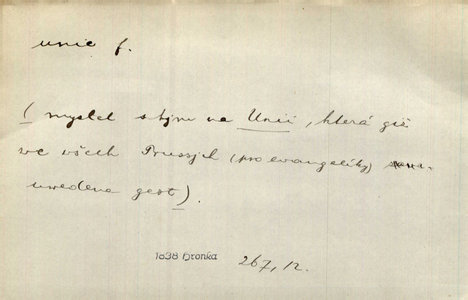 unie f.
( myslel s tým na Unii, která giž
we všech Prussých (pro evangeliky)
uwedena gest ).
1838 Hronka 267, 12.